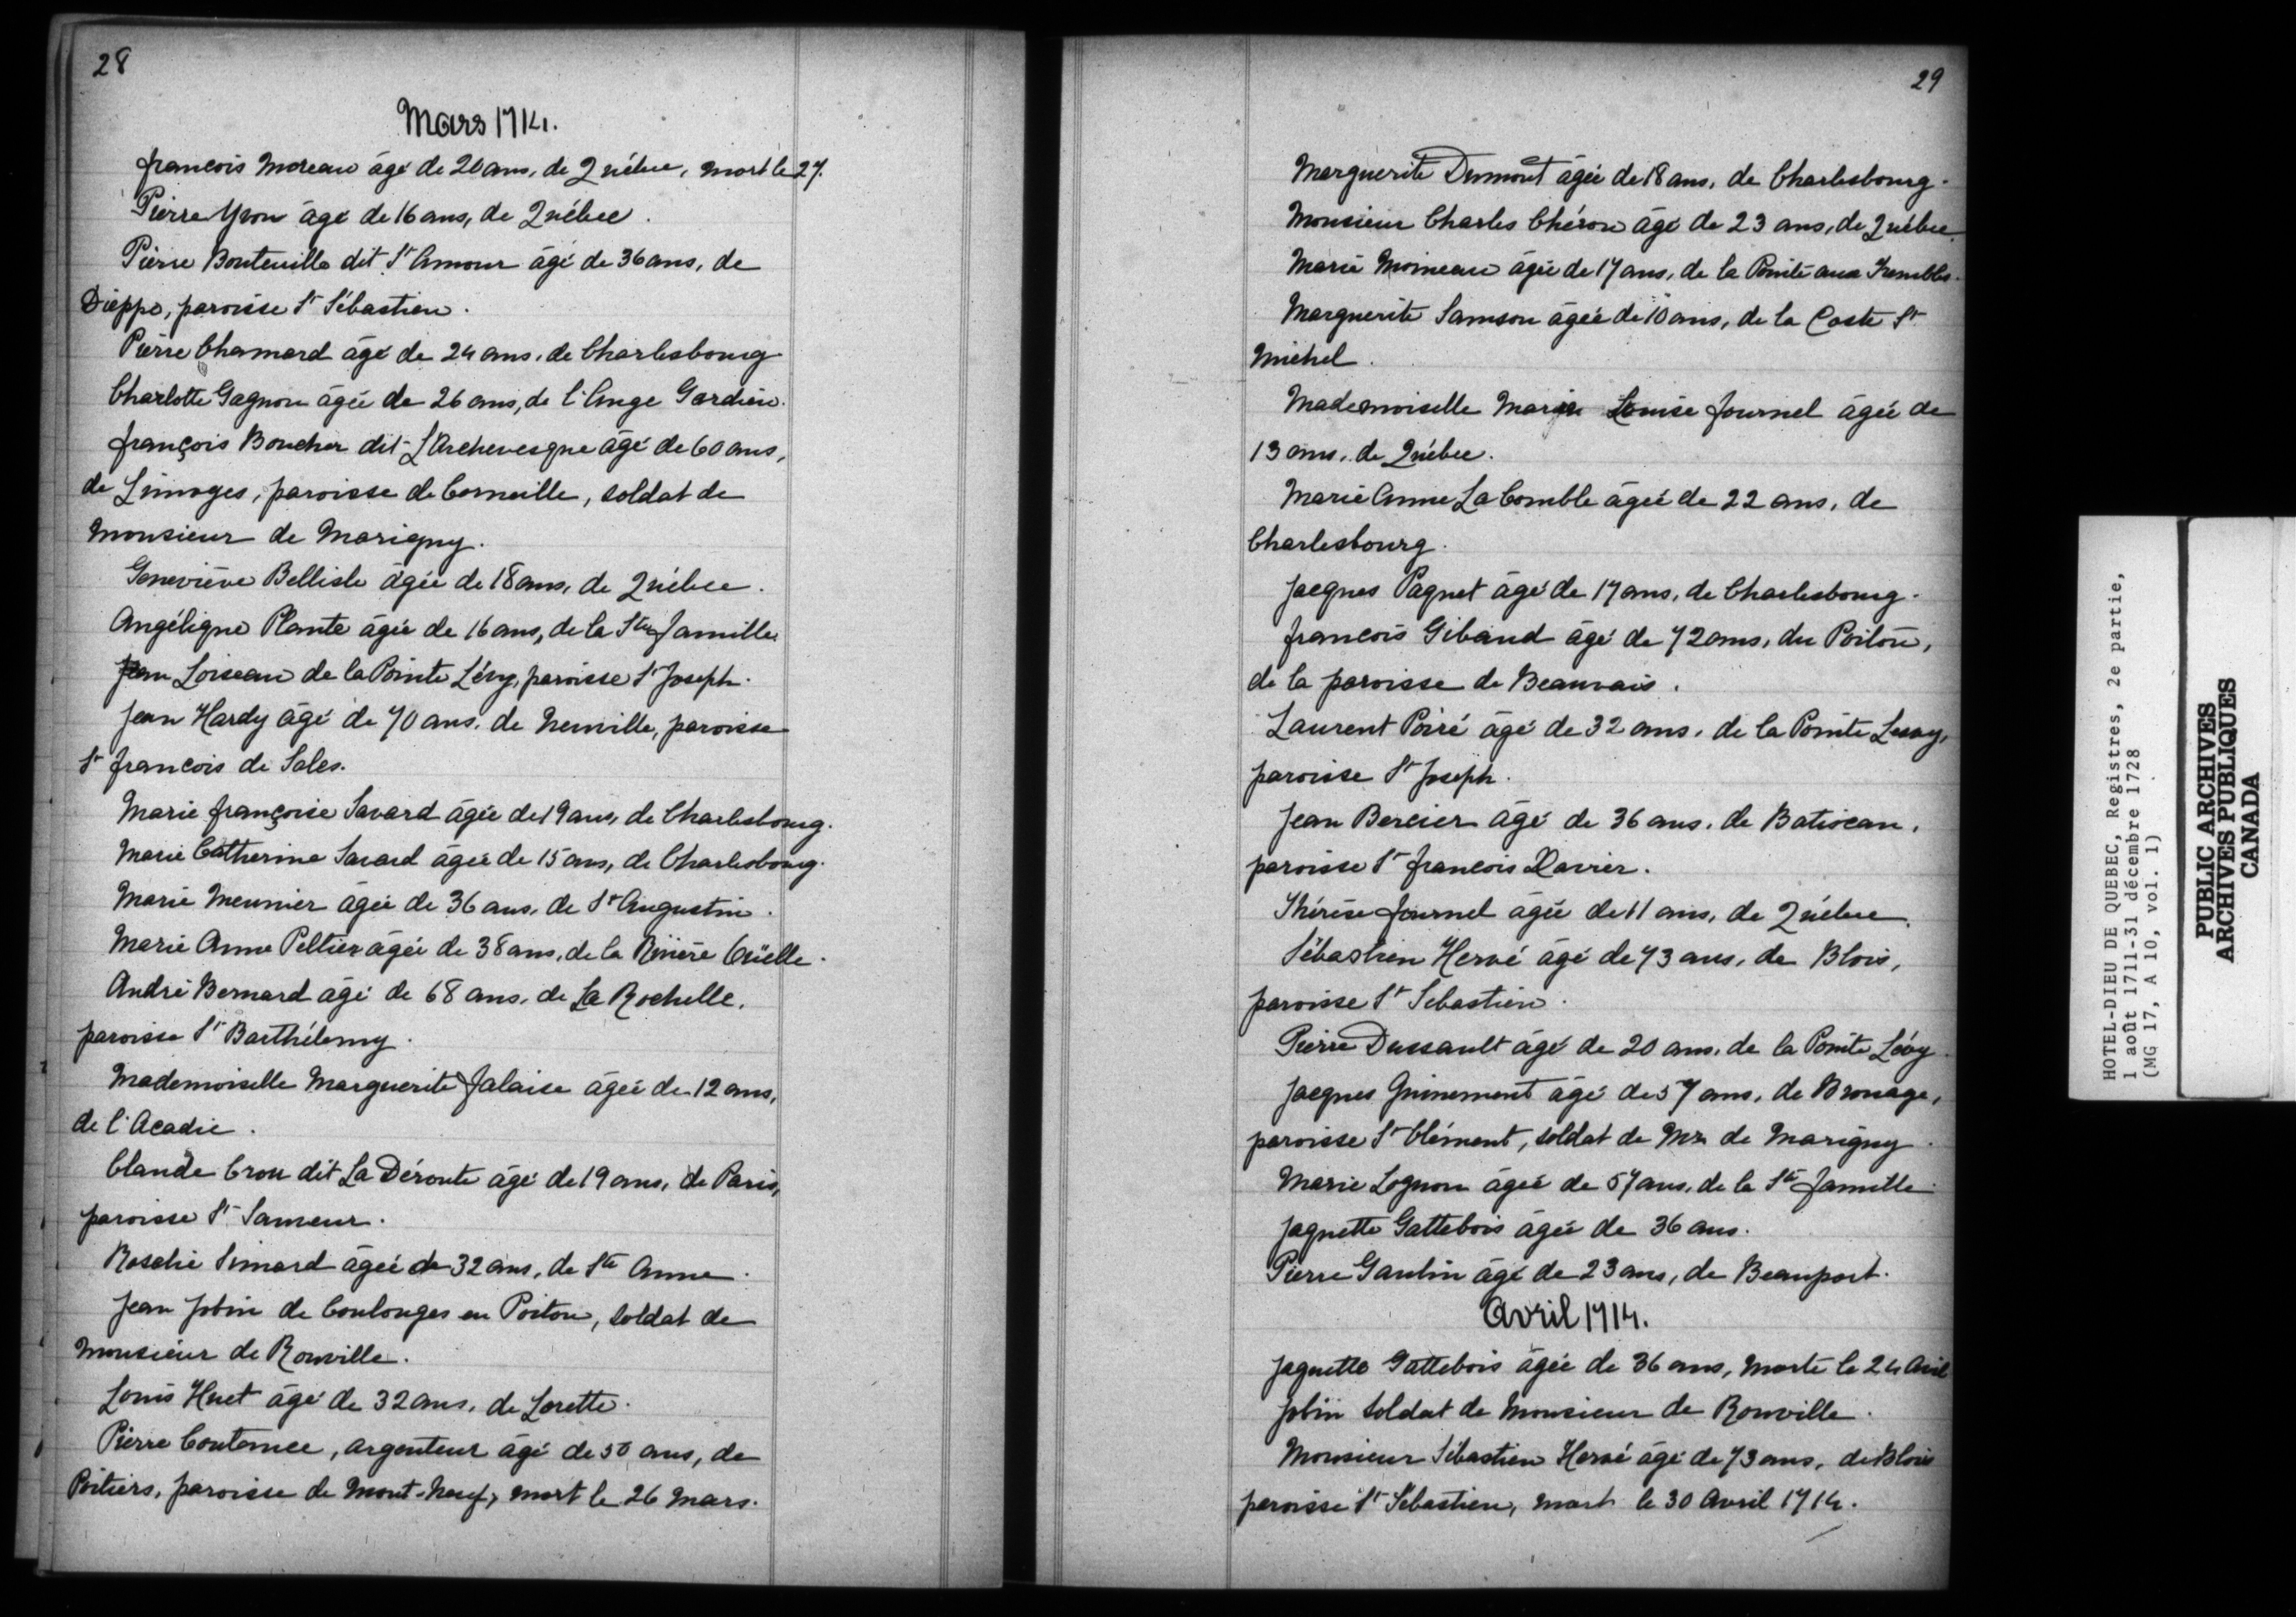 28
Mars 1714.
françois Moreau âgé de 20 ans, de Québec, mort le 27.
Pierre Yvon âgé de 16 ans, de Québec.
Pierre Bouteuille dit St Amour âgé de 36 ans, de
Dieppe, paroisse St Sébastien.
Pierre Chamard âgé de 24 ans, de Charlesbourg.
Charlotte Gagnon âgée de 26 ans, de l'Ange Gardien.
françois Boucher dit L'Archevesque âgé de 60 ans,
de Limoges, paroisse de Corneille, soldat de
Monsieur de Marigny.
Geneviève Bellisle âgée de 18 ans, de Québec.
Angélique Plante âgée de 16 ans, de la Ste famille.
Jean Loiseau de la Pointe Lévy, paroisse St Joseph.
Jean Hardy âgé de 70 ans, de Neuville, paroisse
St françois de Sales.
Marie françoise Savard âgée de 19 ans, de Charlesbourg.
Marie Catherine Savard âgée de 15 ans, de Charlesbourg.
Marie Meunier âgée de 36 ans, de St Augustin.
Marie Anne Peltier âgée de 38 ans, de la Rivière Oüelle.
André Bernard âgé de 68 ans, de La Rochelle,
paroisse St Barthélemy.
Mademoiselle Marguerite falaise âgée de 12 ans,
de l'Acadie.
Claude Crou dit La Déroute âgé de 19 ans, de Paris,
paroisse St Sauveur.
Rosalie Simard âgée de 32 ans, de Ste Anne.
Jean Jobin de Coulonges en Poitou, soldat de
Monsieur de Rouville.
Louis Huet âgé de 32 ans, de Lorette.
Pierre Coutance, argenteur âgé de 50 ans, de
Poitiers, paroisse de Mont-Neuf, mort le 26 Mars.
29
Marguerite Dumont âgée de 18 ans, de Charlesbourg.
Monsieur Charles Chéron âgé de 23 ans, de Québec.
Marie Moineau âgée de 17 ans, de la Pointe aux Trembles.
Marguerite Samson âgée de 10 ans, de la Coste St
Michel.
Mademoiselle Marie Louise fournel âgée de
13 ans, de Québec.
Marie Anne La Comble âgée de 22 ans, de
Charlesbourg.
Jacques Paquet âgé de 17 ans, de Charlesbourg.
françois Gibaud âgé de 72 ans, du Poitou,
de la paroisse de Beauvais.
Laurent Poiré âgé de 32 ans, de la Pointe Levy,
paroisse St Joseph.
Jean Bercier âgé de 36 ans, de Batiscan,
paroisse St françois Xavier.
Thérèse fournel âgée de 11 ans, de Québec.
Sébastien Hervé âgé de 73 ans, de Blois,
paroisse St Sebastien.
Pierre Dussault âgé de 20 ans, de la Pointe Lévy.
Jacques Guinement âgé de 57 ans, de Brouage,
paroisse St Clément, soldat de Mr. de Marigny.
Marie Lognon âgée de 57 ans, de la Ste famille.
Jaquette Gattebois âgée de 36 ans.
Pierre Gaulin âgé de 23 ans, de Beauport.
Avril 1714.
Jaquette Gattebois âgée de 36 ans, morte le 24 Avril
Jobin soldat de Monsieur de Rouville.
Monsieur Sébastien Hervé âgé de 73 ans, de Blois
paroisse St Sébastien, mort le 30 Avril 1714.
HOTEL-DIEU DE QUEBEC, Registres, 2e partie,
1 août 1711-31 décembre 1728
(MG 17, A 10, vol. 1)
PUBLIC ARCHIVES
ARCHIVES PUBLIQUES
CANADA